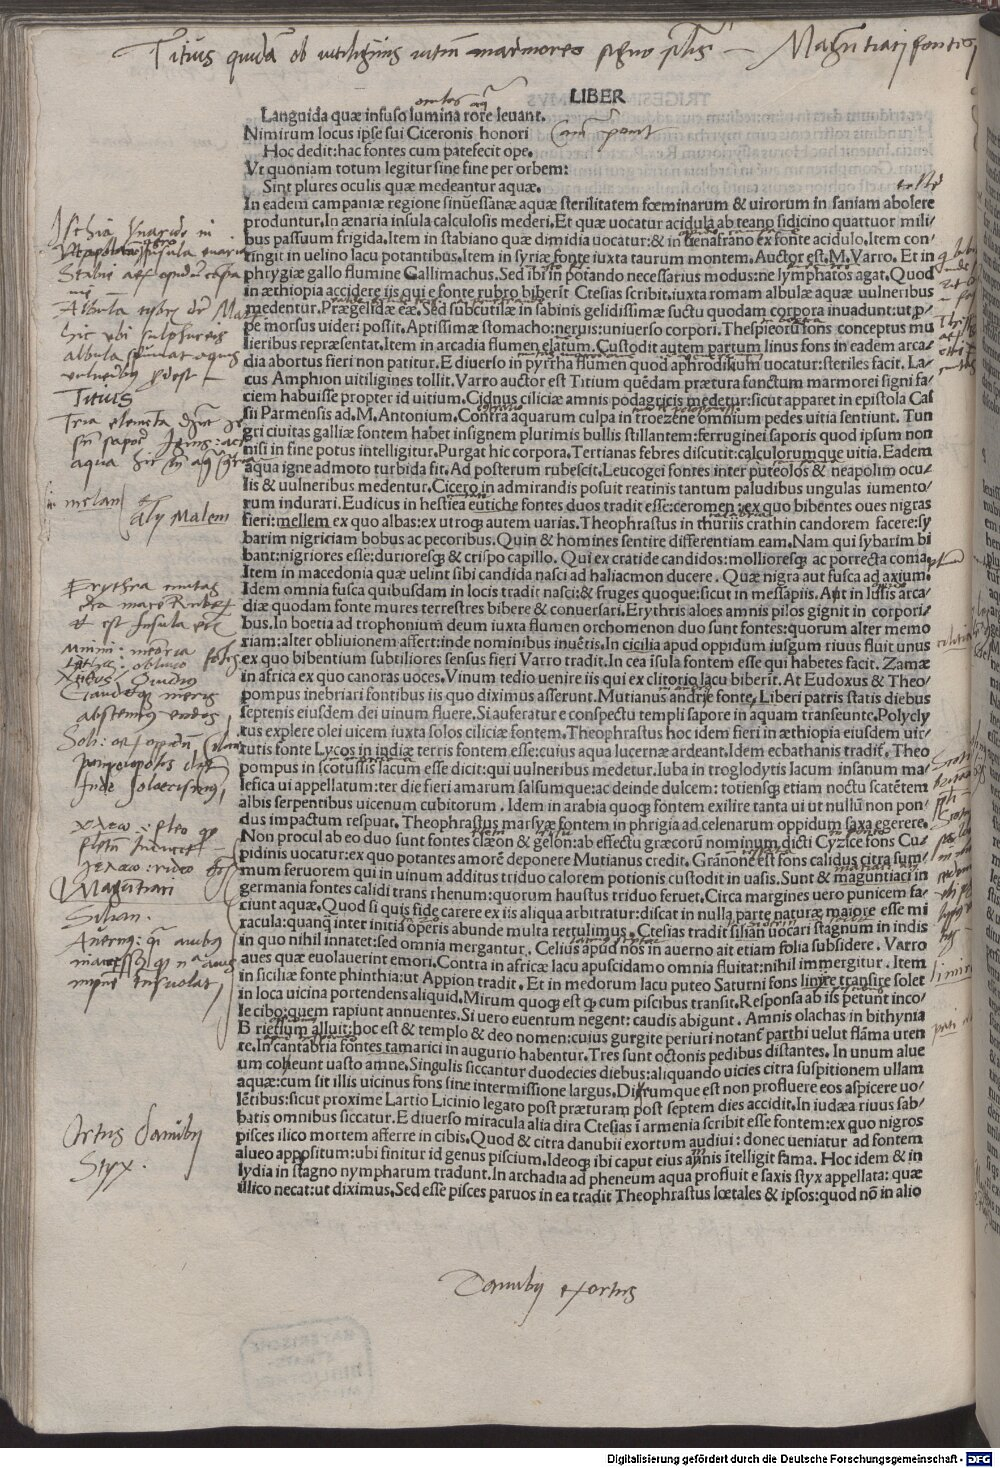 Titius quidam ob uitiligines uitium marmoreo signo
LIBER
Languida quæ infuso lumina rore leuant.
Nimirum locus ipse sui Ciceronis honori
Hoc dedit:hac fontes cum patefecit ope.
Vt quoniam totum legitur sine fine per orbem:
Sint plures oculis quæ medeantur aquæ.
In eadem campaniæ regione sinuessanæ aquæ sterilitatem fœminarum & uirorum in saniam abolere
produntur. In ænaria insula calculosis mederi. Et quæ uocatur acidula ab teano sidicino quattuor mili/
bus passuum frigida. Item in stabiano quæ dimidia uocatur:& in uenafrano ex fonte acidulo. Item con/
tingit in uelino lacu potantibus. Item in syriæ fonte iuxta taurum montem. Auctor est. M. Varro. Et in
phrygiæ gallo flumine Callimachus. Sed ibi in potando necessarius modus:ne lymphatos agat. Quod
in æthiopia accidere iis qui e fonte rubro biberit Ctesias scribit. iuxta romam albulæ aquæ uulneribus
medentur. Prægelidæ eæ. Sed subcutilæ in sabinis gelidissimæ suctu quodam corpora inuadunt:ut p̄/
pe morsus uideri possit. Aptissimæ stomacho:neruis:uniuerso corpori. Thespieorū fons conceptus mu
lieribus repræsentat. Item in arcadia flumen elatum. Custodit autem partum linus fons in eadem arca/
dia abortus fieri non patitur. E diuerso in pyrrha flumen quod aphrodisium uocatur:steriles facit. La/
cus Amphion uitiligines tollit. Varro auctor est Titium quēdam prætura functum marmorei signi fa/
ciem habuisse propter id uitium. Cidnus ciliciæ amnis podagricis medetur:sicut apparet in epistola Cas
sii Parmensis ad. M. Antonium. Contra aquarum culpa in troezene omnium pedes uitia sentiunt. Tun
gri ciuitas galliæ fontem habet insignem plurimis bullis stillantem:ferruginei saporis quod ipsum non
nisi in fine potus intelligitur. Purgat hic corpora. Tertianas febres discutit:calculorumque uitia. Eadem
aqua igne admoto turbida fit. Ad posterum rubescit. Leucogei fontes inter puteolos & neapolim ocu/
lis & uulneribus medentur. Cicero in admirandis posuit reatinis tantum paludibus ungulas iumento/
rum indurari. Eudicus in hestiea eutiche fontes duos tradit esse:ceromen:ex quo bibentes oues nigras
fieri:mellem ex quo albas:ex utroq; autem uarias. Theophrastus in thuriis crathin candorem facere:sy
barim nigriciam bobus ac pecoribus. Quin & homines sentire differentiam eam. Nam qui sybarim bi
bant:nigriores esse:durioresq; & crispo capillo. Qui ex cratide candidos:mollioresq; ac porrecta coma.
Item in macedonia quæ uelint sibi candida nasci ad haliacmon ducere. Quæ nigra aut fusca ad axium.
Idem omnia fusca quibusdam in locis tradit nasci:& fruges quoque:sicut in messapiis. At in lusis arca/
diæ quodam fonte mures terrestres bibere & conuersari. Erythris aloes amnis pilos gignit in corpori/
bus. In boetia ad trophonium deum iuxta flumen orchomenon duo sunt fontes:quorum alter memo
riam:alter obliuionem affert:inde nominibus inuētis. In cilicia apud oppidum iusgum riuus fluit unus
ex quo bibentium subtiliores sensus fieri Varro tradit. In cea īsula fontem esse qui habetes facit. Zamæ
in africa ex quo canoras uoces. Vinum tedio uenire iis qui ex clitorio lacu biberit. At Eudoxus & Theo/
pompus inebriari fontibus iis quo diximus asserunt. Mutianus andrie fonte, Liberi patris statis diebus
septenis eiusdem dei uinum fluere. Si auferatur e conspectu templi sapore in aquam transeunte. Polycly
tus explere olei uicem iuxta solos ciliciæ fontem. Theophrastus hoc idem fieri in æthiopia eiusdem uir/
tutis fonte Lycos in indiæ terris fontem esse:cuius aqua lucernæ ardeant. Idem ecbathanis tradit̄. Theo
pompus in scotussis lacum esse dicit:qui uulneribus medetur. Iuba in troglodytis lacum insanum ma/
lefica ui appellatum:ter die fieri amarum salsumque:ac deinde dulcem: totiensq; etiam noctu scatētem
albis serpentibus uicenum cubitorum. Idem in arabia quoq; fontem exilire tanta ui ut nullū non pon/
dus impactum respuat. Theophrastus marsyæ fontem in phrigia ad celenarum oppidum saxa egerere.
Non procul ab eo duo sunt fontes clæon & gelon:ab effectu græcorū nominum dicti Cyzice fons Cu/
pidinis uocatur:ex quo potantes amorē deponere Mutianus credit. Grānone est fons calidus citra sum/
mum feruorem qui in uinum additus triduo calorem potionis custodit in uasis. Sunt & maguntiaci in
germania fontes calidi trans rhenum:quorum haustus triduo feruet. Circa margines uero punicem fa/
ciunt aquæ. Quod si quis fide carere ex iis aliqua arbitratur:discat in nulla parte naturæ maiore esse mi
racula:quanq̄ inter initia operis abunde multa rettulimus. Ctesias tradit silian uocari stagnum in indis
in quo nihil innatet:sed omnia mergantur. Celius apud nos in auerno ait etiam folia subsidere. Varro
aues quæ euolauerint emori. Contra in africæ lacu apuscidamo omnia fluitat:nihil immergitur. Item
in siciliæ fonte phinthia:ut Appion tradit. Et in medorum lacu puteo Saturni fons limyre transire solet
in loca uicina portendens aliquid. Mirum quoq; est q; cum piscibus transit. Responsa ab iis petunt inco/
le cibo:quem rapiunt annuentes. Si uero euentum negent: caudis abigunt. Amnis olachas in bithynia
B rietium alluit:hoc est & templo & deo nomen:cuius gurgite periuri notant̄ parthi uelut flāma uren
te. In cantabria fontes tamarici in augurio habentur. Tres sunt octonis pedibus distantes. In unum alue
um coheunt uasto amne. Singulis siccantur duodecies diebus:aliquando uicies citra suspitionem ullam
aquæ:cum sit illis uicinus fons sine intermissione largus. Dirumque est non profluere eos aspicere uo/
lētibus:sicut proxime Lartio Licinio legato post præturam post septem dies accidit. In iudæa riuus sab/
batis omnibus siccatur. E diuerso miracula alia dira Ctesias ī armenia scribit esse fontem:ex quo nigros
pisces ilico mortem afferre in cibis. Quod & citra danubii exortum audiui: donec ueniatur ad fontem
alueo appositum:ubi finitur id genus piscium. Ideoq; ibi caput eius amnis ītelligit fama. Hoc idem & in
lydia in stagno nympharum tradunt. In archadia ad pheneum aqua profluit e saxis styx appellata: quæ
illico necat:ut diximus. Sed esse pisces paruos in ea tradit Theophrastus lœtales & ipsos:quod nō in alio
Titius
in melan
aly Malem
Maguntiaci
Silian.
Ortus danubij
Styx.
Danubij exortus
Digitalisierung gefördert durch die Deutsche Forschungsgemeinschaft - DFG